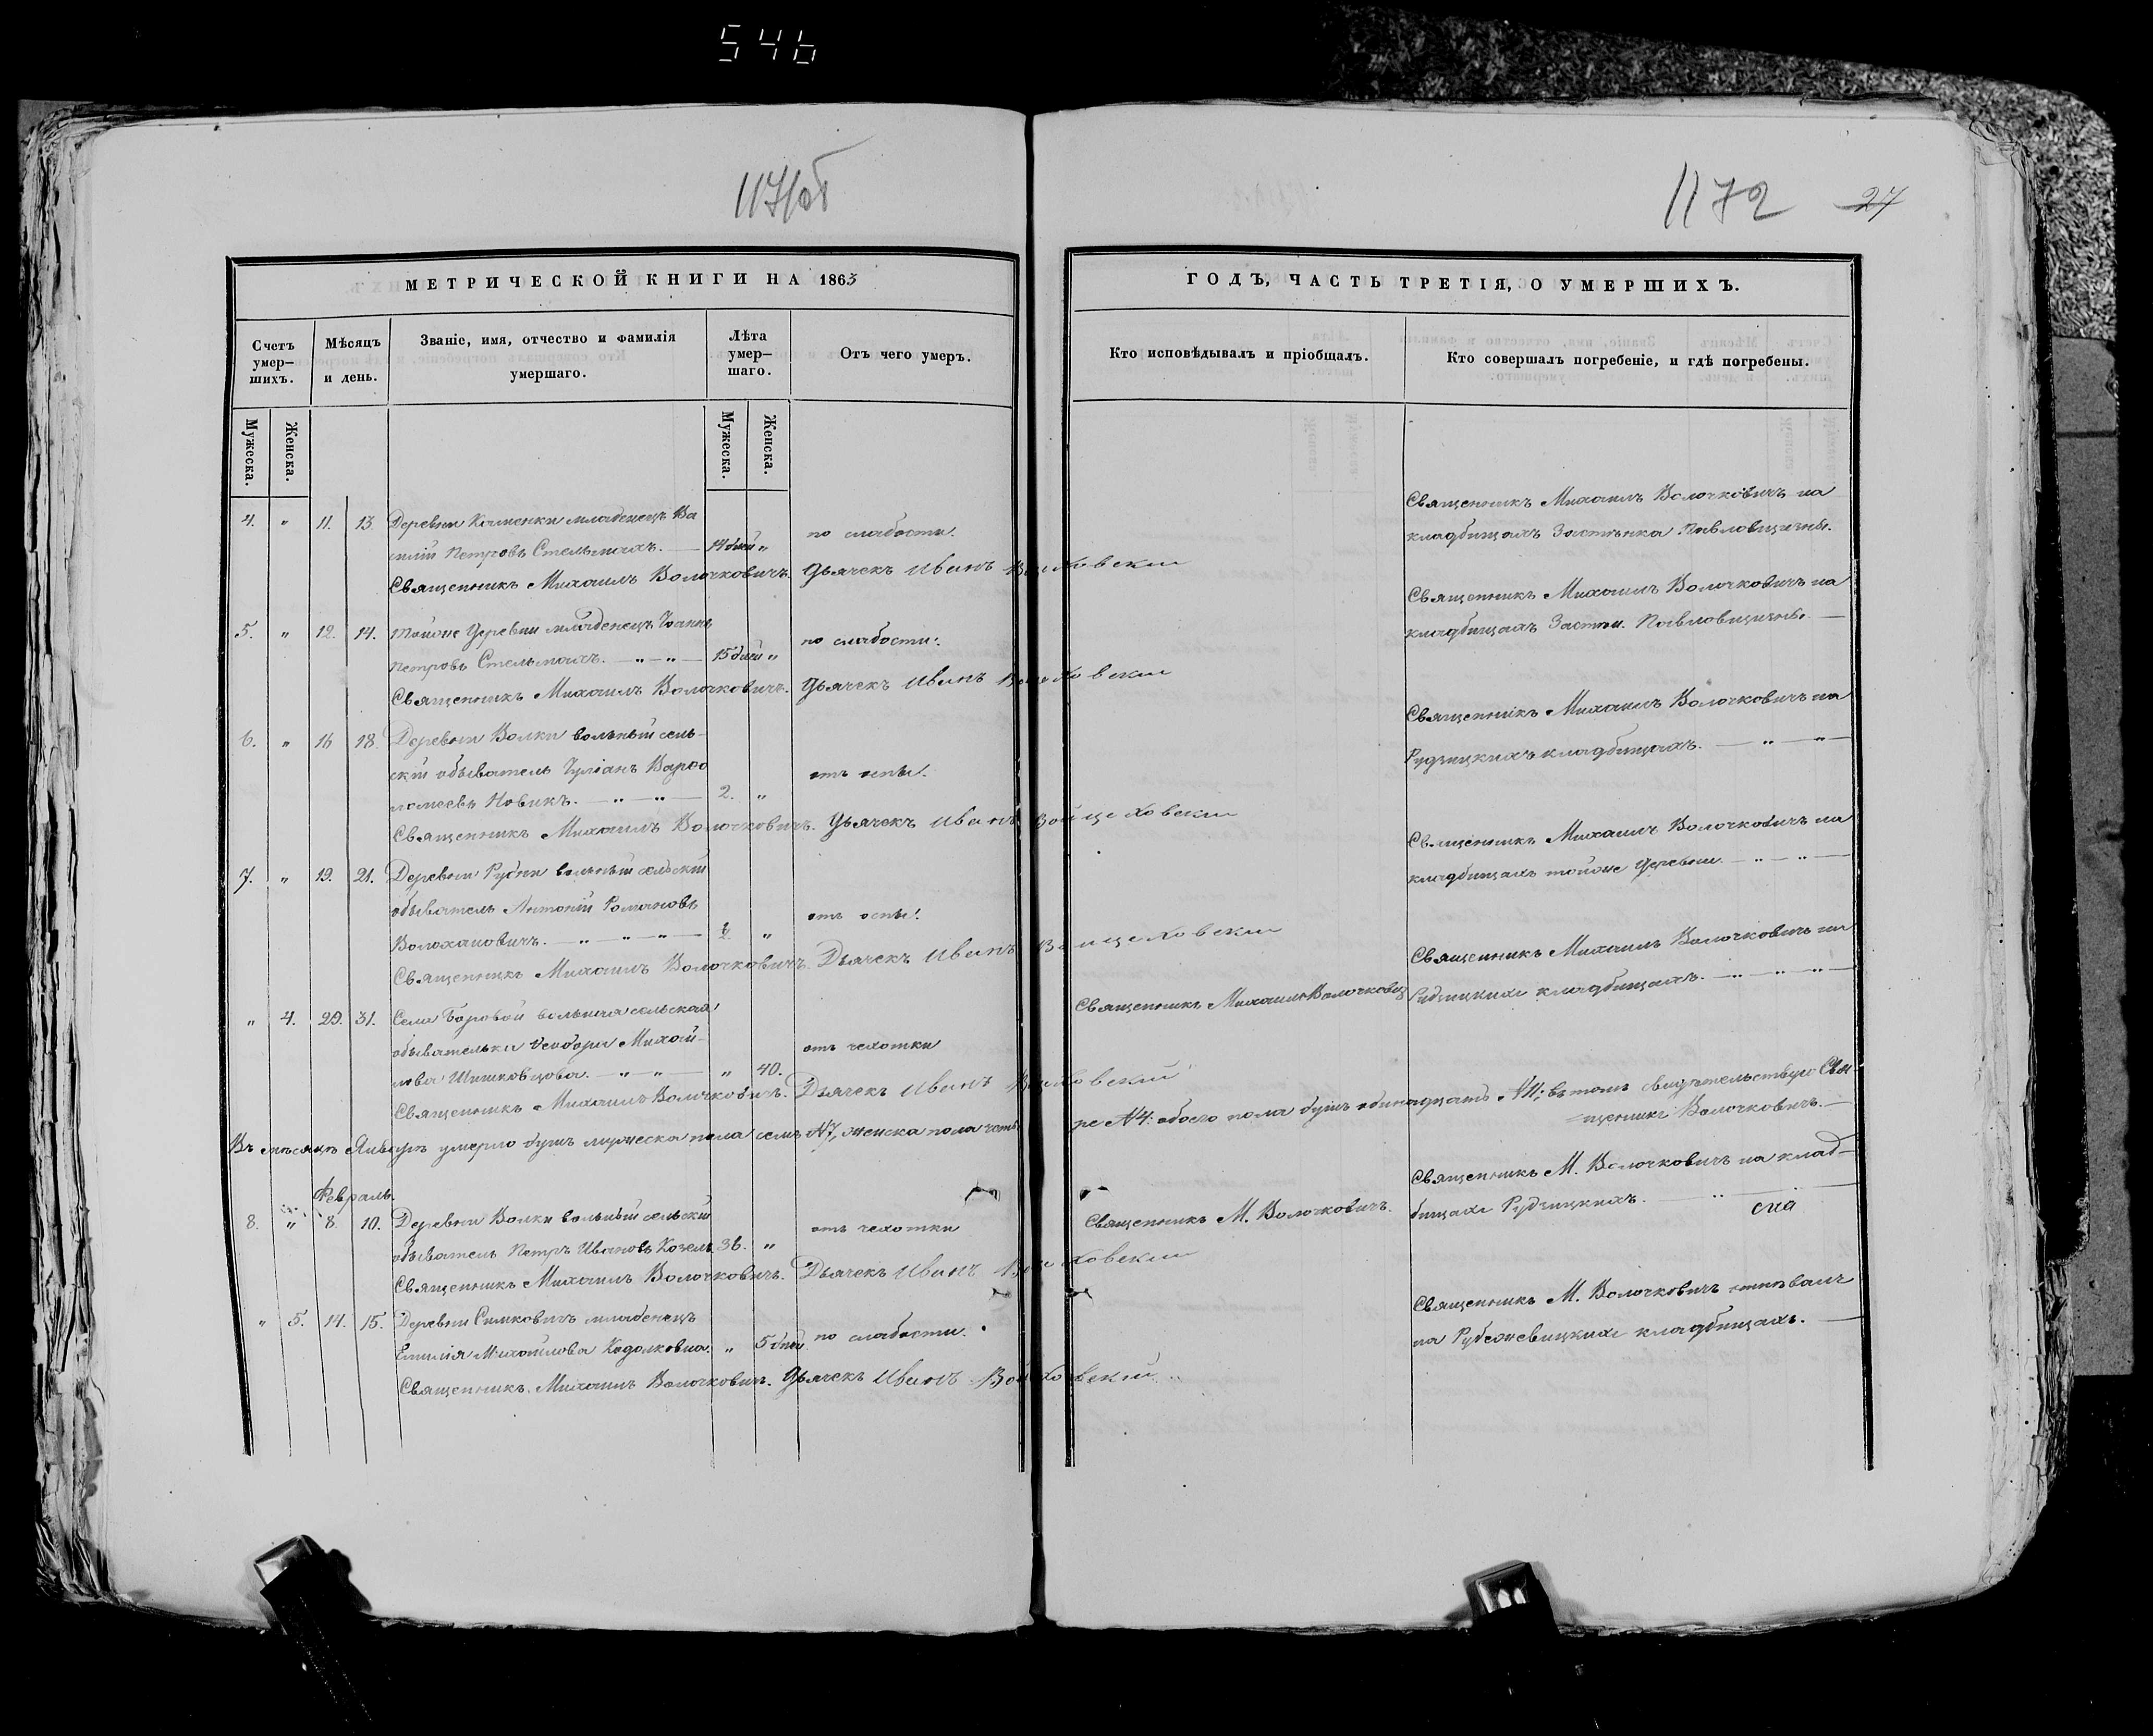 546
1171об
1172 27
МЕТРИЧЕСКОЙ КНИГИ НА 1863
ГОДЪ, ЧАСТЬ ТРЕТІЯ, О УМЕРШИХЪ.
Счетъ умер–шихъ.
Мѣсяцъ и день.
Званіе, имя, отчество и фамилія умершаго.
Лѣта умер–шаго.
Отъ чего умеръ.
Кто исповѣдывалъ и пріобщалъ.
Кто совершалъ погребеніе, и гдѣ погребены.
Мужеска.
Женска.
Мужеска.
Женска.
4. " 11. 13. Деревни Каменки младенецъ Ва
силій Петровъ Стельмахъ. — 14 дней " по слабости.
Священникъ Михаилъ Волочковичъ на
кладбищахъ Застѣнка Павловщизны.
Священникъ Михаилъ Волочковичъ. Дьячекъ Иванъ Войцеховскій
5. " 12. 14. Тойже Деревни младенецъ Іоаннъ
Петровъ Стельмахъ. — " — " — 15 дней " по слабости.
Священникъ Михаилъ Волочковичъ на
кладбищахъ Застѣн. Павловщизны. —
Священникъ Михаилъ Волочковичъ. Дьячекъ Иванъ Войцеховскій
6. " 16 18. Деревни Волки вольный сель–
скій обыватель Іуліанъ Варѳо
ломеевъ Новикъ. — " — " — 2. " отъ оспы.
Священникъ Михаилъ Волочковичъ на
Рудзицкихъ кладбищахъ. — " — " —
Священникъ Михаилъ Волочковичъ. Дьячекъ Иванъ Войцеховскій
7. " 19. 21. Деревни Рудни вольный сельскій
обыватель Антоній Романовъ
Волохановичъ. — " — " — " — 2 " отъ оспы.
Священникъ Михаилъ Волочковичъ на
кладбищахъ тойже Деревни. — " — " —
Священникъ Михаилъ Волочковичъ. Дьячекъ Иванъ Войцеховскій
" 4. 29. 31. Села Боровой вольная сельская
обывателька Ѳеодора Михай–
лова Шишковцова. — " — " — " 40. отъ чехотки
Священникъ Михаилъ Волочковичъ
Священникъ Михаилъ Волочковичъ на
Рудзицкихъ кладбищахъ. — " — " — " —
Священникъ Михаилъ Волочковичъ. Дьячекъ Иванъ Войцеховскій
Въ мѣсяцѣ Январѣ умерло душъ мужеска пола семь №7, женска пола четы
ре №4: обоего пола душъ одинадцать №11; въ томъ свидѣтельствую Свя
щенникъ Волочковичъ. —
Февраль.
8. " 8. 10. Деревни Волки вольный сельскій
обыватель Петръ Ивановъ Козелъ 36. " отъ чехотки
Священникъ М. Волочковичъ.
Священникъ М. Волочковичъ на клад–
бищахъ Рудзицкихъ. — " —
Священникъ Михаилъ Волочковичъ. Дьячекъ Иванъ Войцеховскій
" 5. 14. 15. Деревни Симковичъ младенецъ
Емилія Михайлова Кодолковна. " 5 дней по слабости.
Священникъ М. Волочковичъ отпѣвалъ
на Рубежевицкихъ кладбищахъ. —
Священникъ Михаилъ Волочковичъ. Дьячекъ Иванъ Войцеховскій